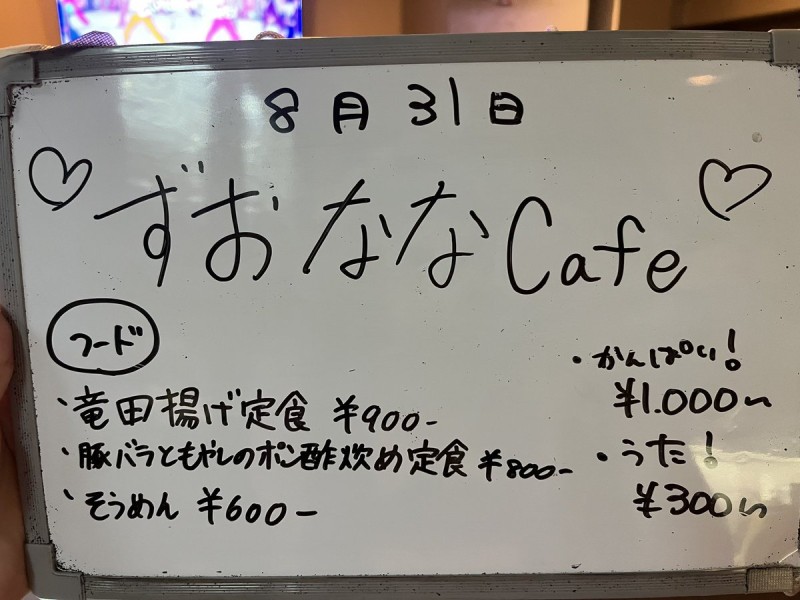 8月31日
♡ ずおなな Cafe ♡
フード
・竜田揚げ定食 ¥900-
・豚バラともやしのポン酢炒め定食 ¥800-
・そうめん ¥600-
・かんぱい!
¥1.000~
・うた!
¥300~